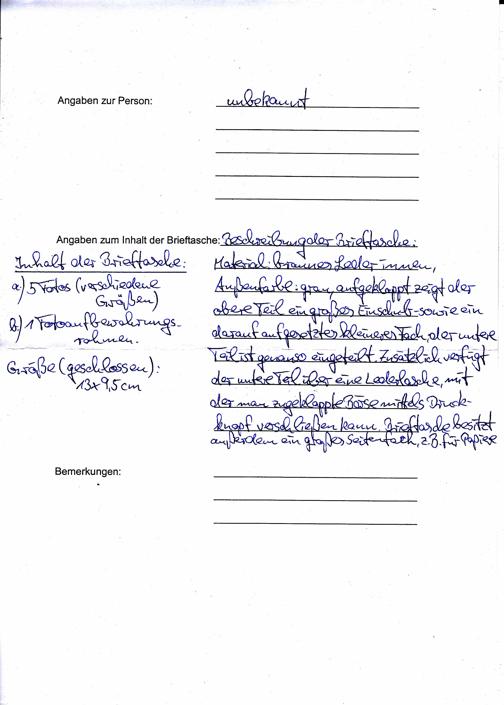 Angaben zur Person: unbekannt
Angaben zum Inhalt der Brieftasche: Beschreibung der Brieftasche:
Inhalt der Brieftasche:
a) 5 Fotos (verschiedene
Größen)
b) 1 Fotoaufbewahrungs-
rahmen.
Größe (geschlossen):
13x9,5cm
Material: braunes Leder innen,
Außenfarbe: grau, aufgeklappt zeigt der
obere Teil ein großes Einschub- sowie ein
darauf aufgesetztes kleineres Fach, der untere
Teil ist genauso eingeteilt. Zusätzlich verfügt
der untere Teil über eine Lederlasche, mit
der man zugeklappte Börse mittels Druck-
knopf verschließen kann. Brieftasche besitzt
außerdem ein großes Seitenfach, z.B. für Papiere
Bemerkungen: